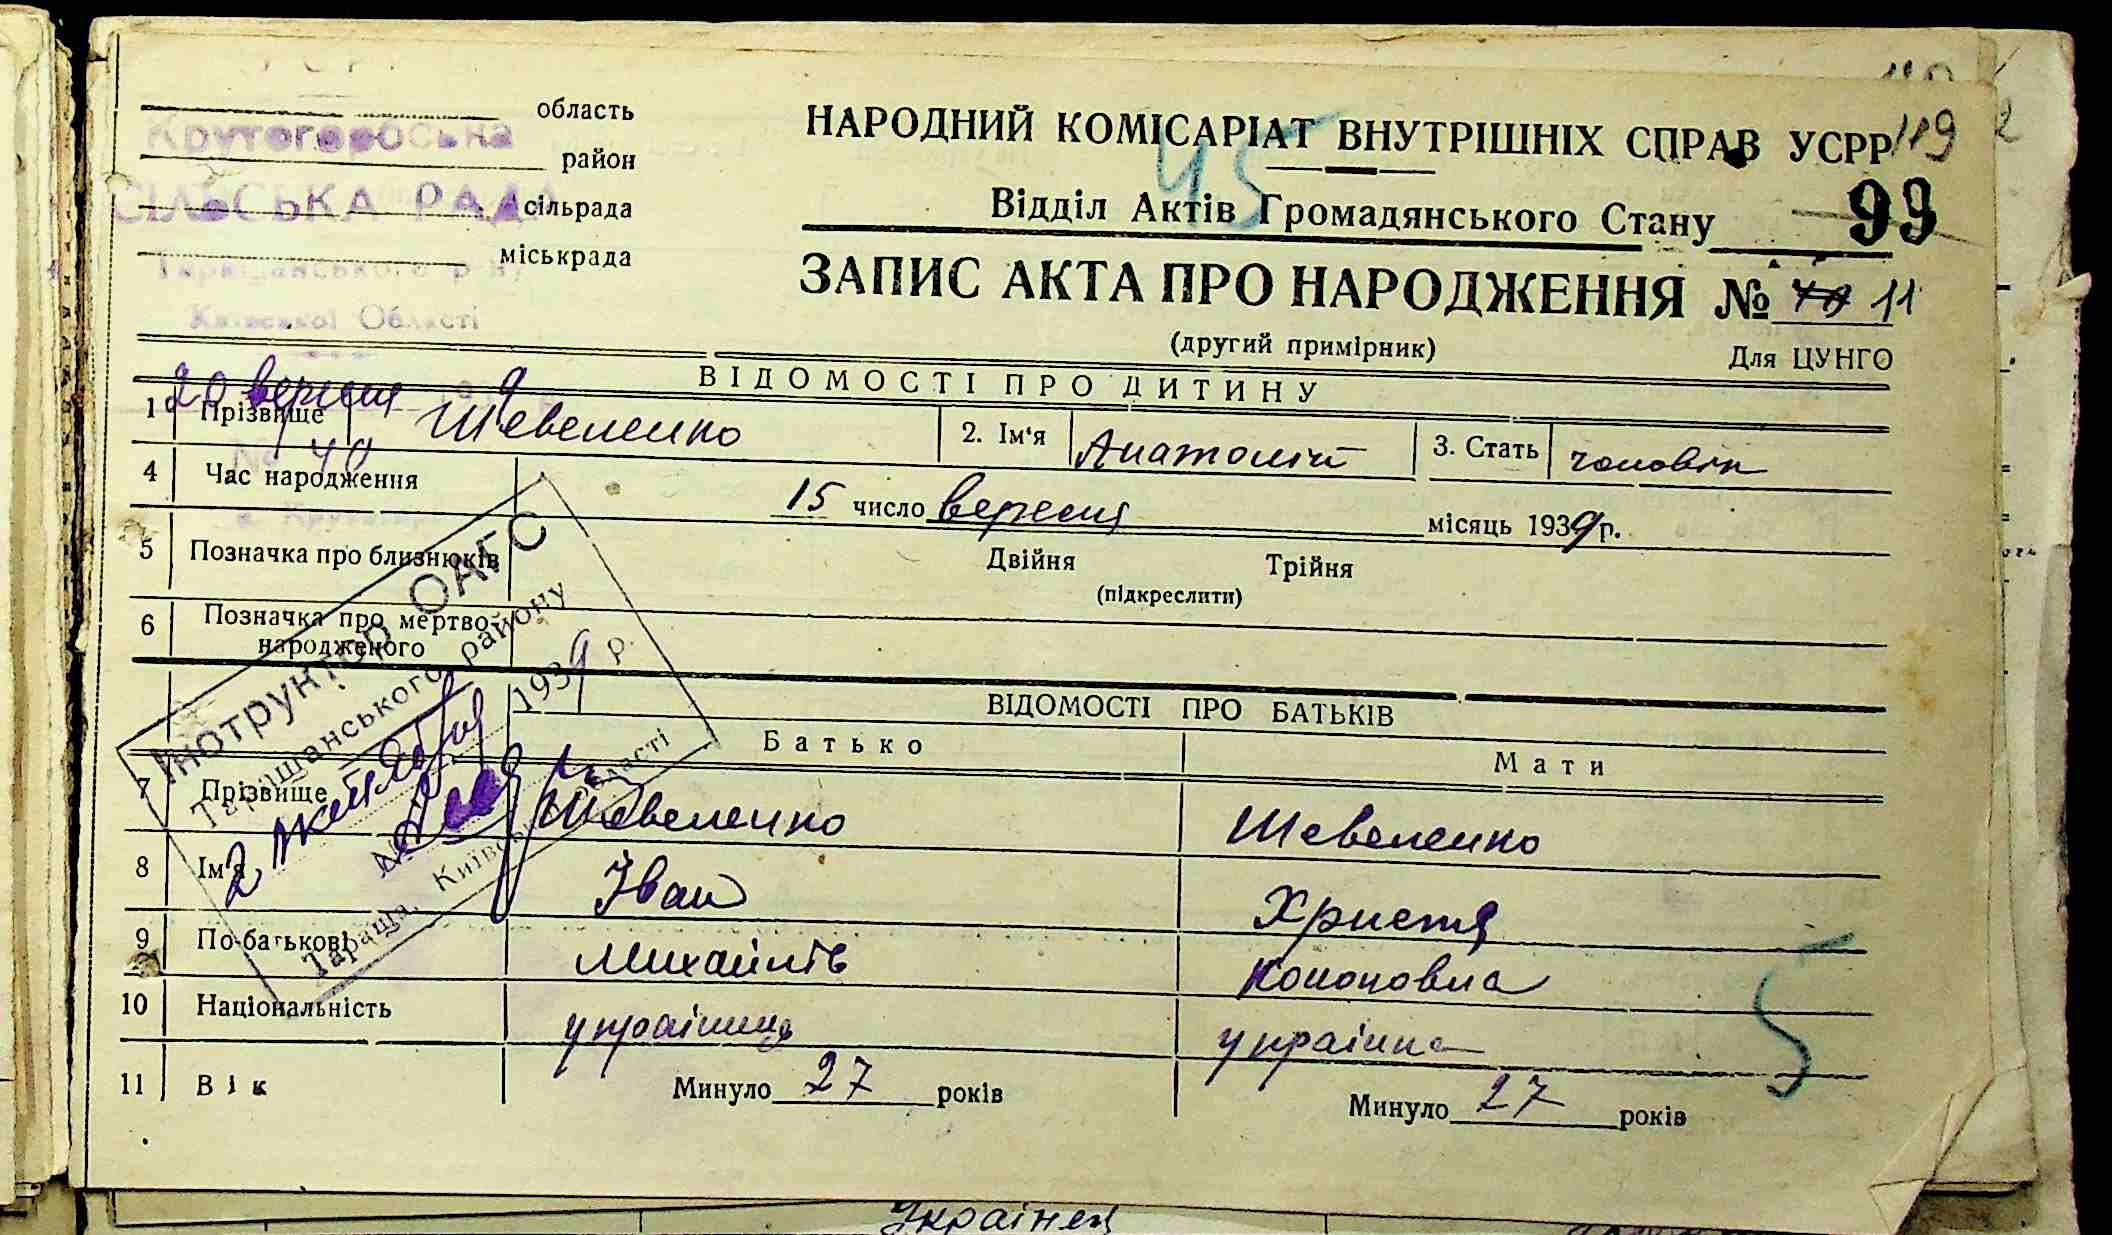 область
Крутогорбська
район
СІЛЬСЬКА РАДА
сільрада
міськрада
Таращанського р-ну
Київської Області
НАРОДНИЙ КОМІСАРІАТ ВНУТРІШНІХ СПРАВ УСРР
119
45
Відділ Актів Громадянського Стану
99
ЗАПИС АКТА ПРО НАРОДЖЕННЯ № 40 11
(другий примірник)
Для ЦУНГО
20 вересня 9
№ 40
ВІДОМОСТІ ПРО ДИТИНУ
1 Прізвище Шевеленко 2. Ім'я Анатолій 3. Стать чоловік
4 Час народження 15 число вересня місяць 1939 р.
5 Позначка про близнюків Двійня Трійня
(підкреслити)
6 Позначка про мертво-
народженого
Інструктор ОАГС
Таращанського району
2 жовтня 1939 р.
№
Тараща, Київської області
ВІДОМОСТІ ПРО БАТЬКІВ
Батько Мати
7 Прізвище Шевеленко Шевеленко
8 Ім'я Іван Христя
9 По-батькові Михайлів Кононовна
10 Національність українець українка
5
11 Вік Минуло 27 років Минуло 27 років
Українец